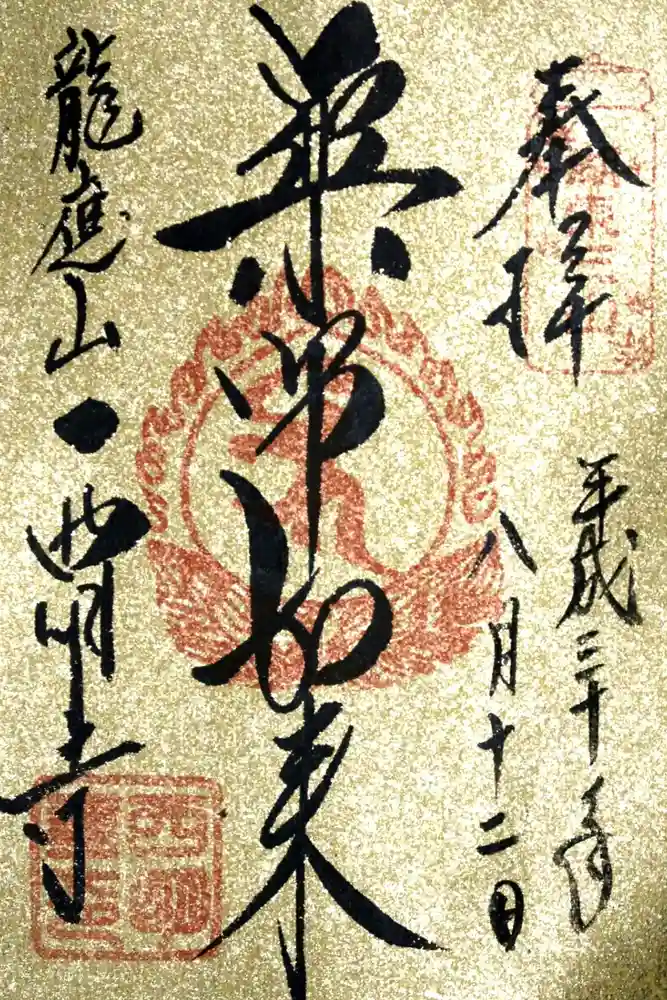 奉拝
平成三十年
八月十二日
薬師如来
龍應山
西明寺